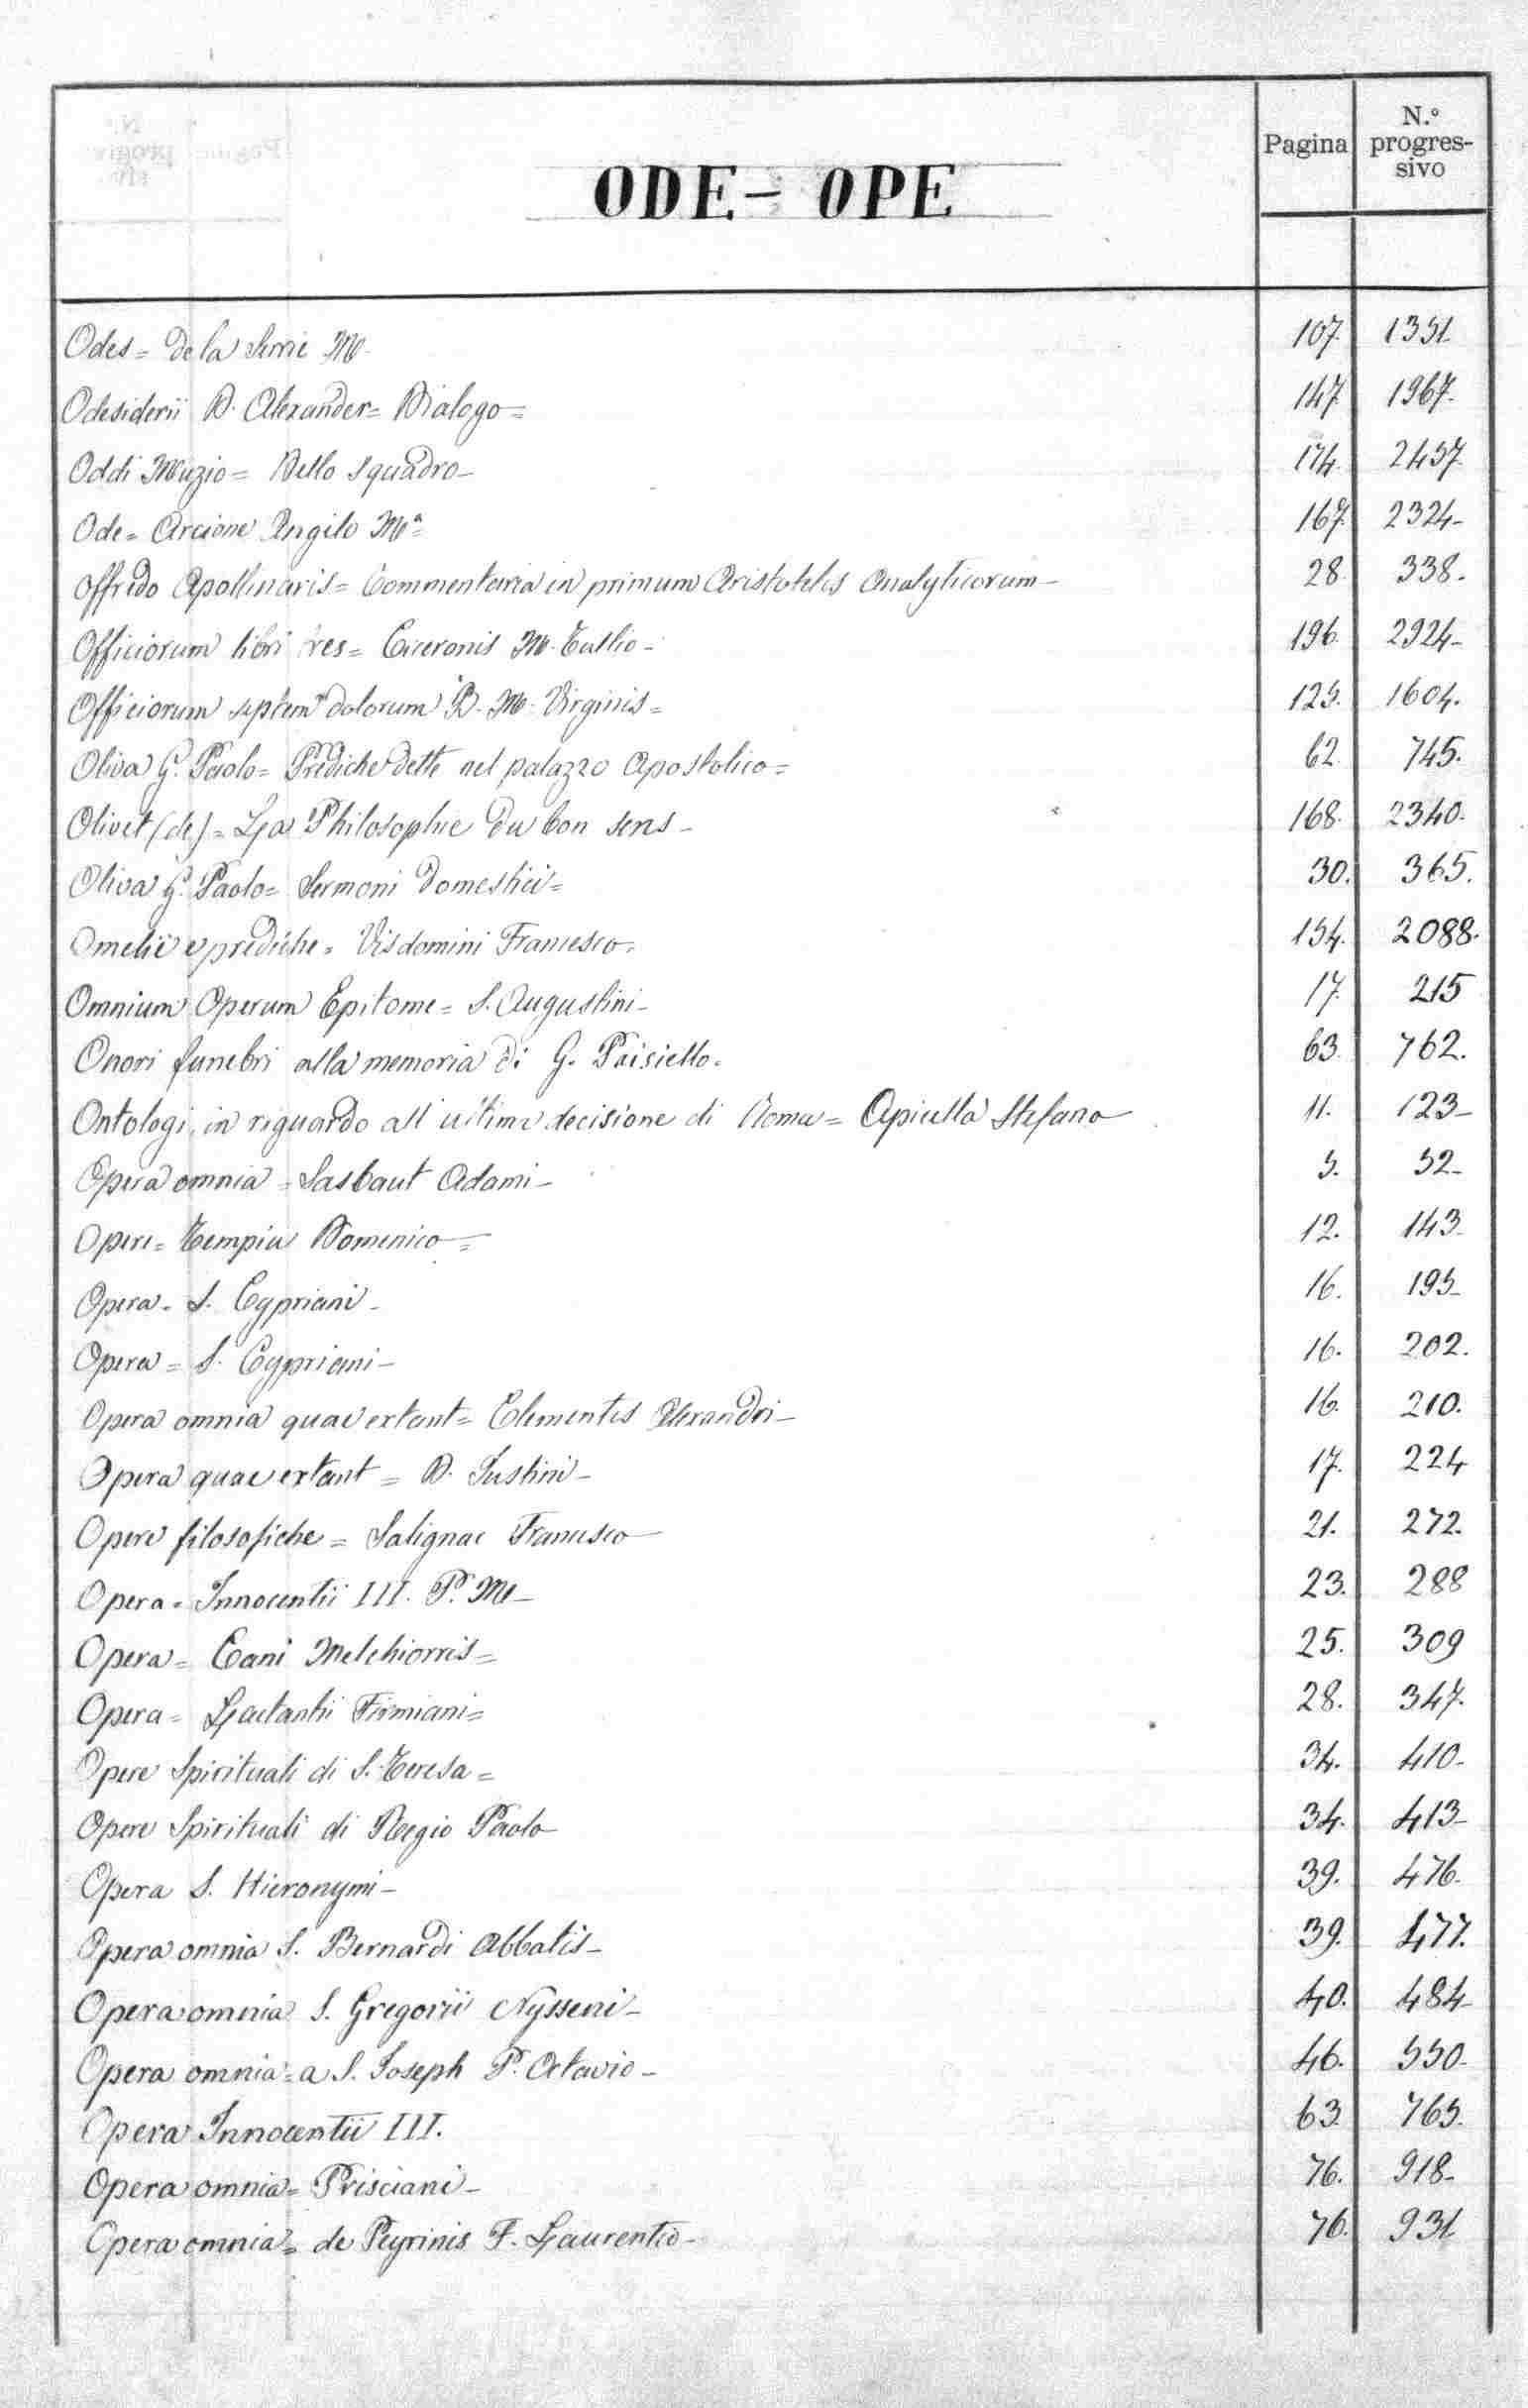 Pagina N.° progressivo
ODE - OPE
Odes = de la Serrie M. 107. 1351.
Odesiderii D. Alexander = Dialogo = 147. 1967.
Oddi Muzio = Dello squadro - 174. 2457.
Ode = Arcione Angilo Mª = 167. 2324 -
Offredo Apollinaris = Commentaria in primum Aristotelis Analyticorum - 28. 338.
Officiorum libri tres = Ciceronis M. Tullio - 196. 2924 -
Officiorum septem dolorum B. M. Virginis = 125. 1604.
Oliva G. Paolo = Prediche dette nel palazzo Apostolico = 62. 745.
Olivet (de) = La Philosophie du bon sens - 168. 2340.
Oliva G. Paolo = Sermoni domestici = 30. 365.
Omelie e prediche = Visdomini Francesco = 154. 2088.
Omnium Operum Epitome = S. Augustini - 17. 215
Onori funebri alla memoria di G. Paisiello. 63. 762.
Ontologi, in riguardo all'ultima decisione di Roma = Apicella Stefano 11. 123 -
Opera omnia = Sasbaut Adami - 5. 52 -
Opere = Tempio Domenico = 12. 143 -
Opera = S. Cypriani - 16. 195 -
Opera = S. Cypriani - 16. 202.
Opera omnia quae extant = Clementis Alexandri - 16. 210.
Opera quae extant = D. Justini - 17. 224
Opere filosofiche = Salignac Francesco 21. 272.
Opera = Innocentii III. P. M - 23. 288
Opera = Cani Melchiorris = 25. 309
Opera = Lactantii Firmiani = 28. 347.
Opere Spirituali di S. Teresa = 34. 410 -
Opere Spirituali di Regio Paolo 34. 413 -
Opera S. Hieronymi - 39. 476.
Opera omnia S. Bernardi Abbatis - 39. 477.
Opera omnia S. Gregorii Nysseni - 40. 484 -
Opera omnia = a S. Joseph P. Octavio - 46. 550 -
Opera Innocentii III. 63. 765.
Opera omnia = Prisciani - 76. 918 -
Opera omnia = de Peyrinis F. Laurentio - 76. 931